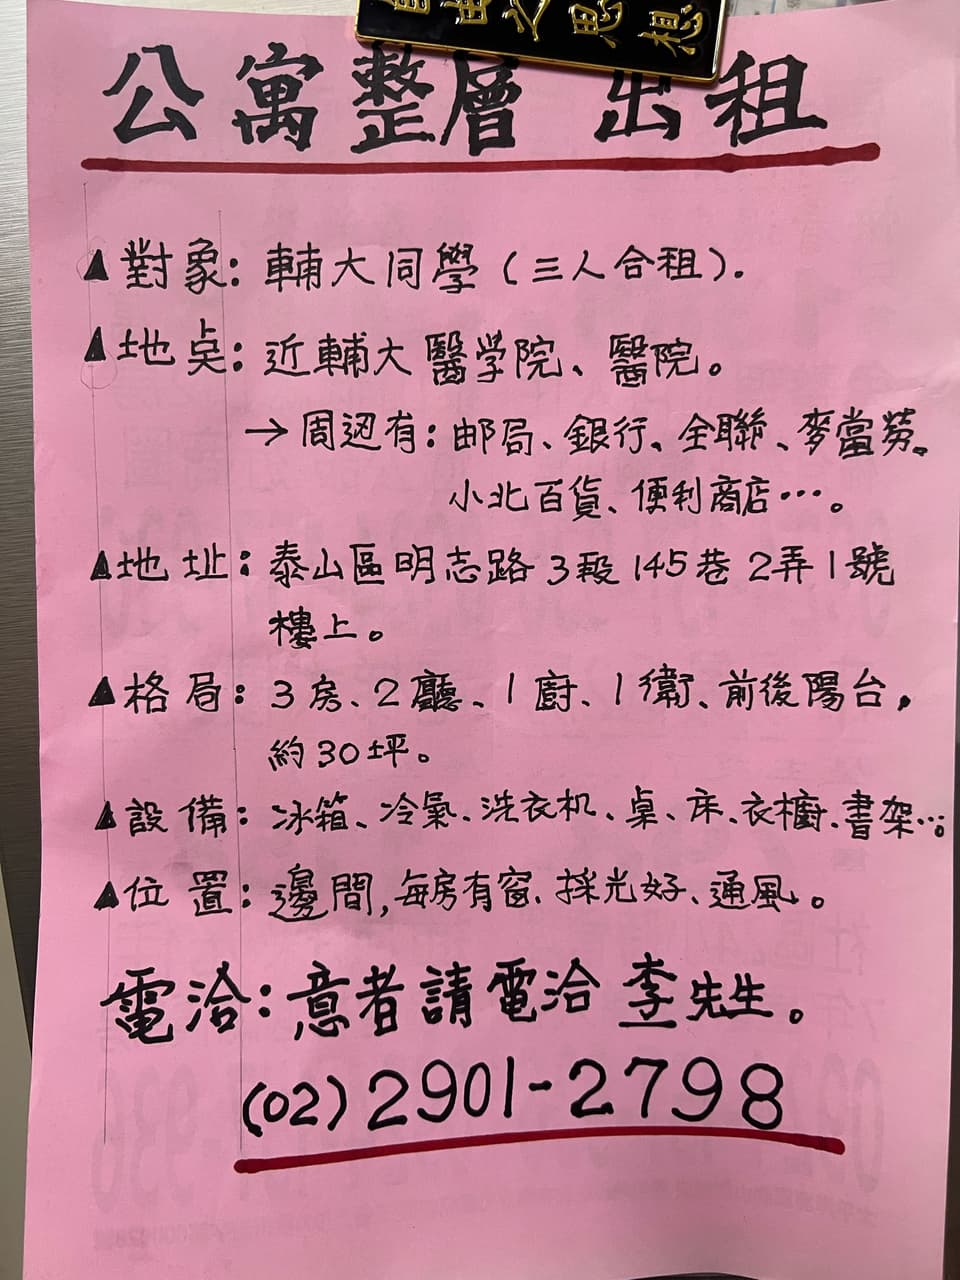 自由之思想
公寓整層 出租
▲對象：輔大同學（三人合租）.
▲地点：近輔大醫学院、醫院。
→周边有：邮局、銀行、全聯、麥當勞。
小北百貨、便利商店…。
▲地址：泰山區明志路3段145巷2弄1號
樓上。
▲格局：3房、2廳、1廚、1衛、前後陽台，
約30坪。
▲設備：冰箱、冷氣、洗衣机、桌、床、衣櫥、書架…。
▲位置：邊間，每房有窗、採光好、通風。
電洽：意者請電洽 李先生。
(02)2901-2798